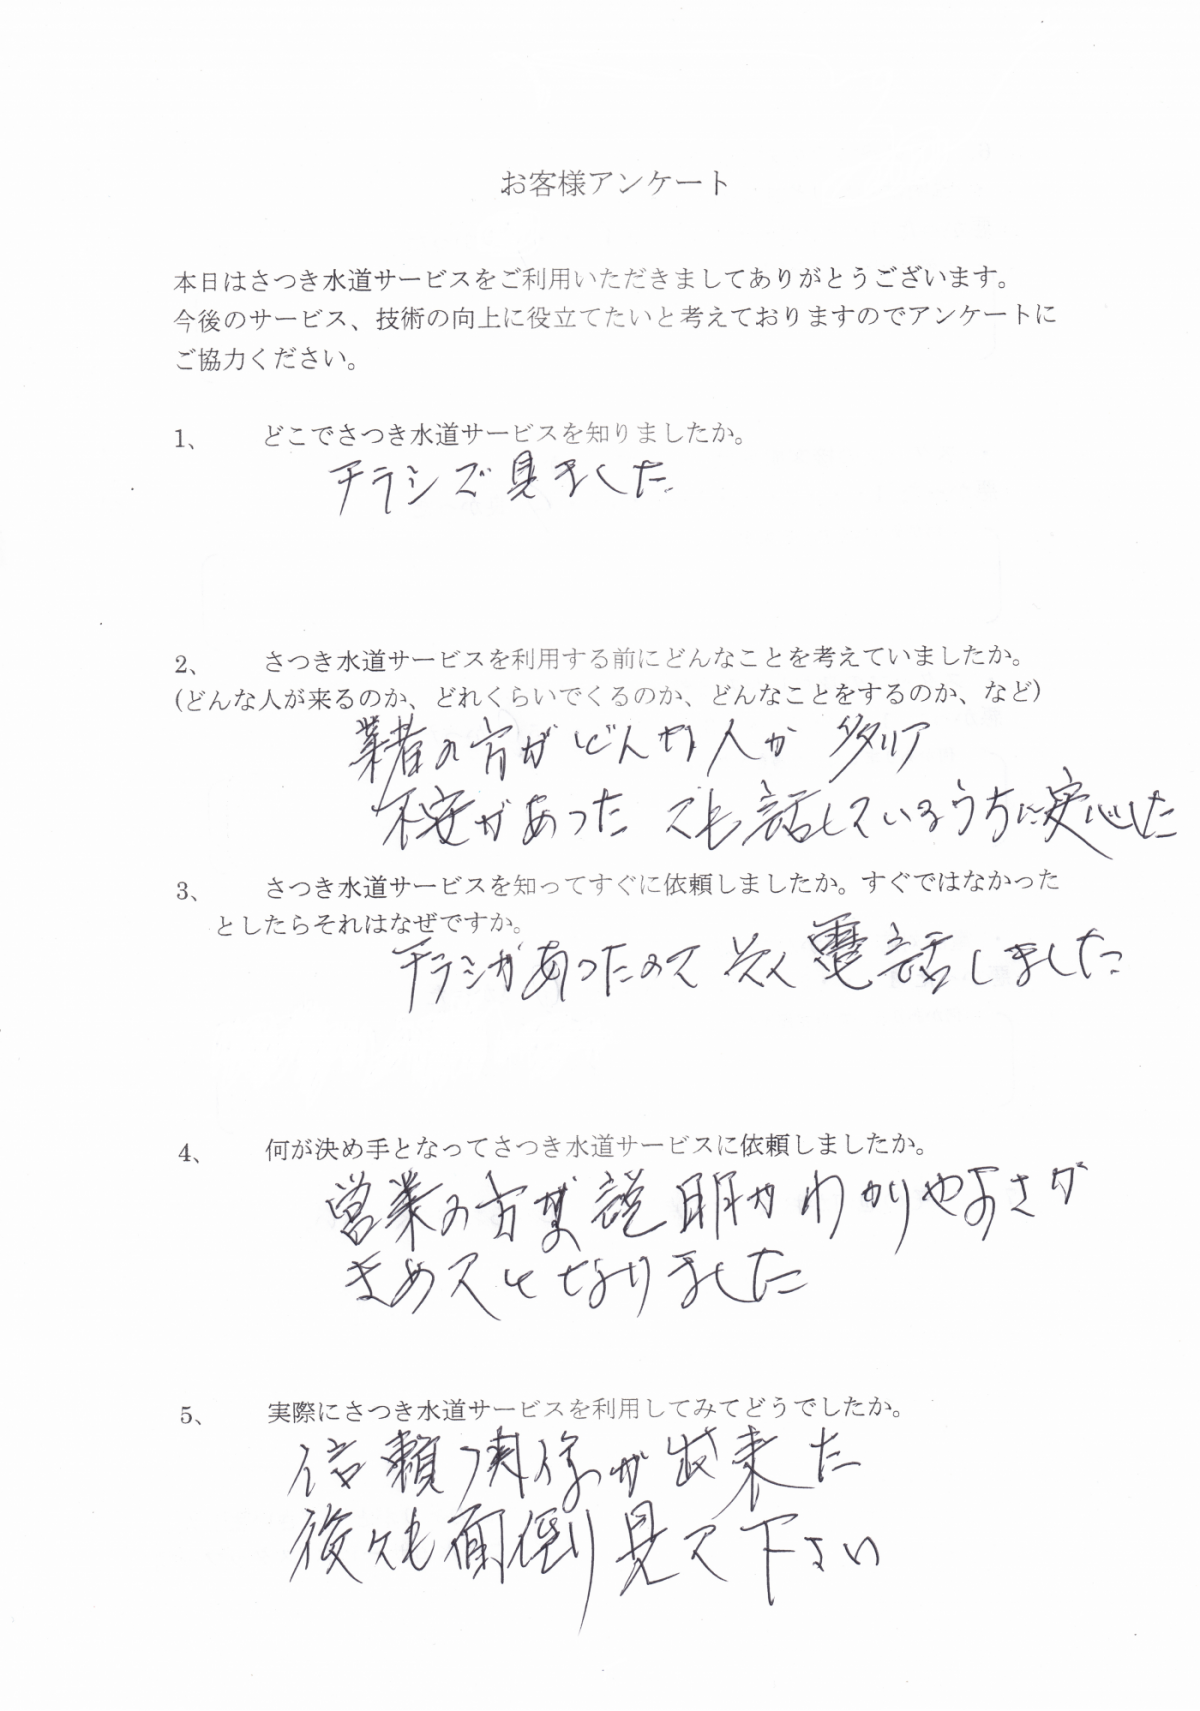 お客様アンケート
本日はさつき水道サービスをご利用いただきましてありがとうございます。
今後のサービス、技術の向上に役立てたいと考えておりますのでアンケートに
ご協力ください。
1、 どこでさつき水道サービスを知りましたか。
チラシで見ました
2、 さつき水道サービスを利用する前にどんなことを考えていましたか。
(どんな人が来るのか、どれくらいでくるのか、どんなことをするのか、など)
業者の方がどんな人か
不安があった でも話しているうちに安心した
3、 さつき水道サービスを知ってすぐに依頼しましたか。すぐではなかった
としたらそれはなぜですか。
チラシがあったので 電話しました
4、 何が決め手となってさつき水道サービスに依頼しましたか。
営業の方 説明が わかりやすさが
きめてとなりました
5、 実際にさつき水道サービスを利用してみてどうでしたか。
信頼関係が出来た
後々も面倒見て下さい